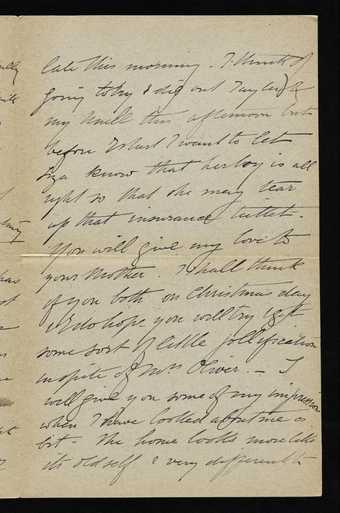 late this morning. I think of
going to try & dig out Taylor
my Uncle this afternoon but
before I start I want to let
Liza know that her boy is all
right so that she may tear
up that insurance ticket.
You will give my love to
your Mother. I shall think
of you both on Christmas day
& I do hope you will try & get
some sort of little jollification
in spite of Mrs Oliver. — I
will give you some of my impressions
when I have looked about me a
bit. The home looks more like
its old self & very different